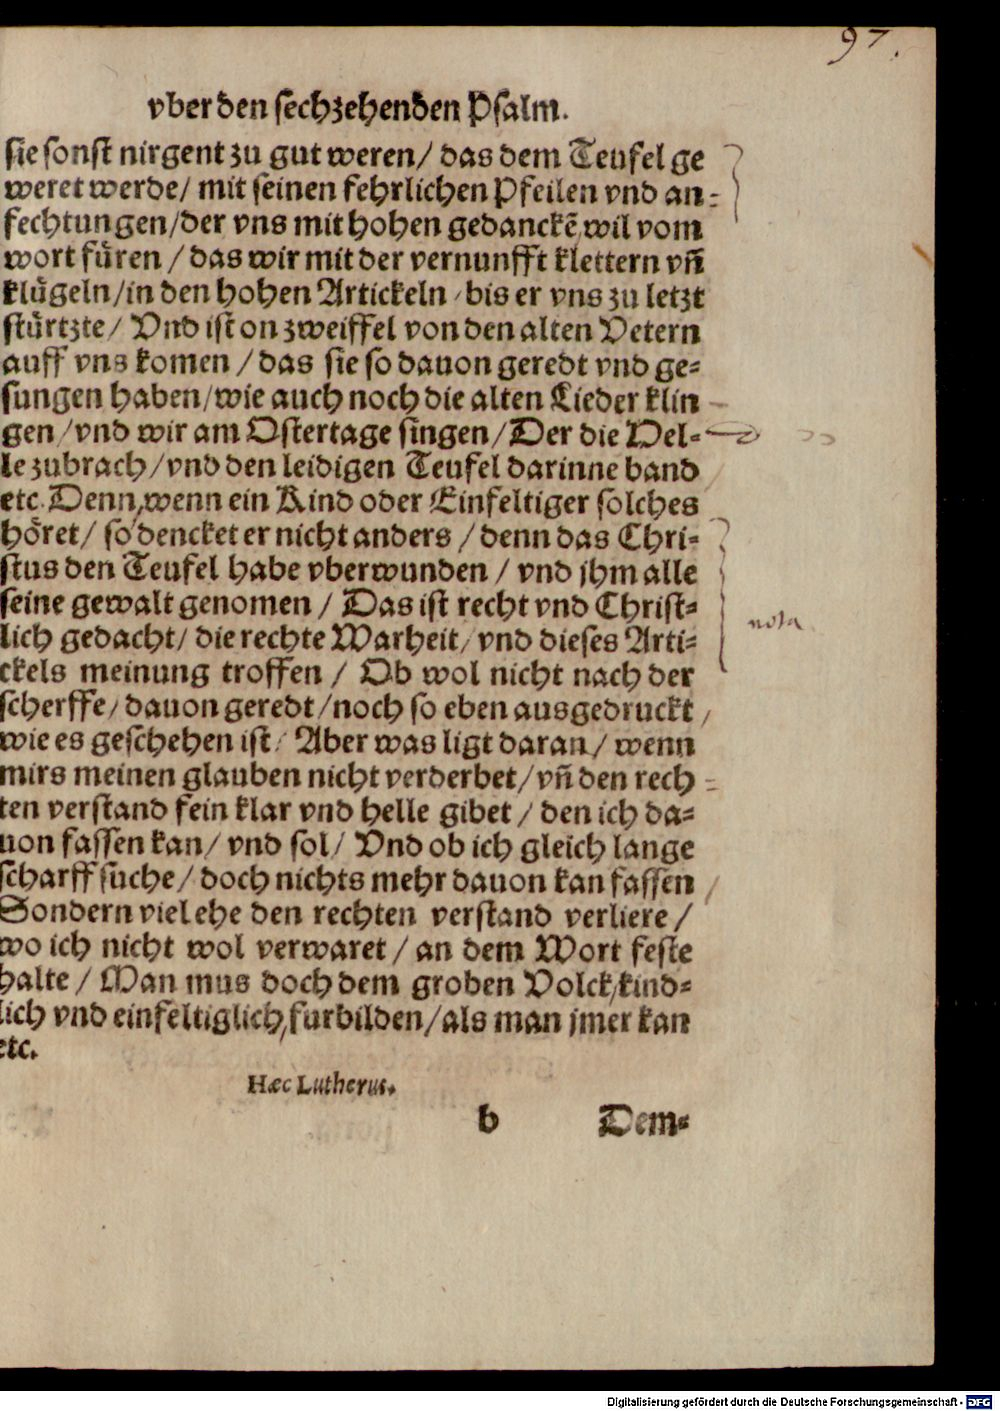 97.
vber den sechzehenden Psalm.
sie sonst nirgent zu gut weren / das dem Teufel ge
weret werde / mit seinen fehrlichen Pfeilen vnd an-
fechtungen / der vns mit hohen gedanckẽ wil vom
wort füren / das wir mit der vernunfft klettern vñ
klügeln / in den hohen Artickeln / bis er vns zu letzt
stürtzte / Vnd ist on zweiffel von den alten Vetern
auff vns komen / das sie so dauon geredt vnd ge-
sungen haben / wie auch noch die alten Lieder klin
gen / vnd wir am Ostertage singen / Der die Hel-
le zubrach / vnd den leidigen Teufel darinne band
etc. Denn, wenn ein Kind oder Einfeltiger solches
höret / so dencket er nicht anders / denn das Chri-
stus den Teufel habe vberwunden / vnd jhm alle
seine gewalt genomen / Das ist recht vnd Christ-
lich gedacht / die rechte Warheit / vnd dieses Arti-
ckels meinung troffen / Ob wol nicht nach der
scherffe / dauon geredt / noch so eben ausgedruckt /
wie es geschehen ist / Aber was ligt daran / wenn
mirs meinen glauben nicht verderbet / vñ den rech
ten verstand fein klar vnd helle gibet / den ich da-
uon fassen kan / vnd sol / Vnd ob ich gleich lange
scharff suche / doch nichts mehr dauon kan fassen /
Sondern viel ehe den rechten verstand verliere /
wo ich nicht wol verwaret / an dem Wort feste
halte / Man mus doch dem groben Volck / kind-
lich vnd einfeltiglich, furbilden / als man jmer kan
etc.
nota
Hæc Lutherus.
b Dem-
Digitalisierung gefördert durch die Deutsche Forschungsgemeinschaft - DFG